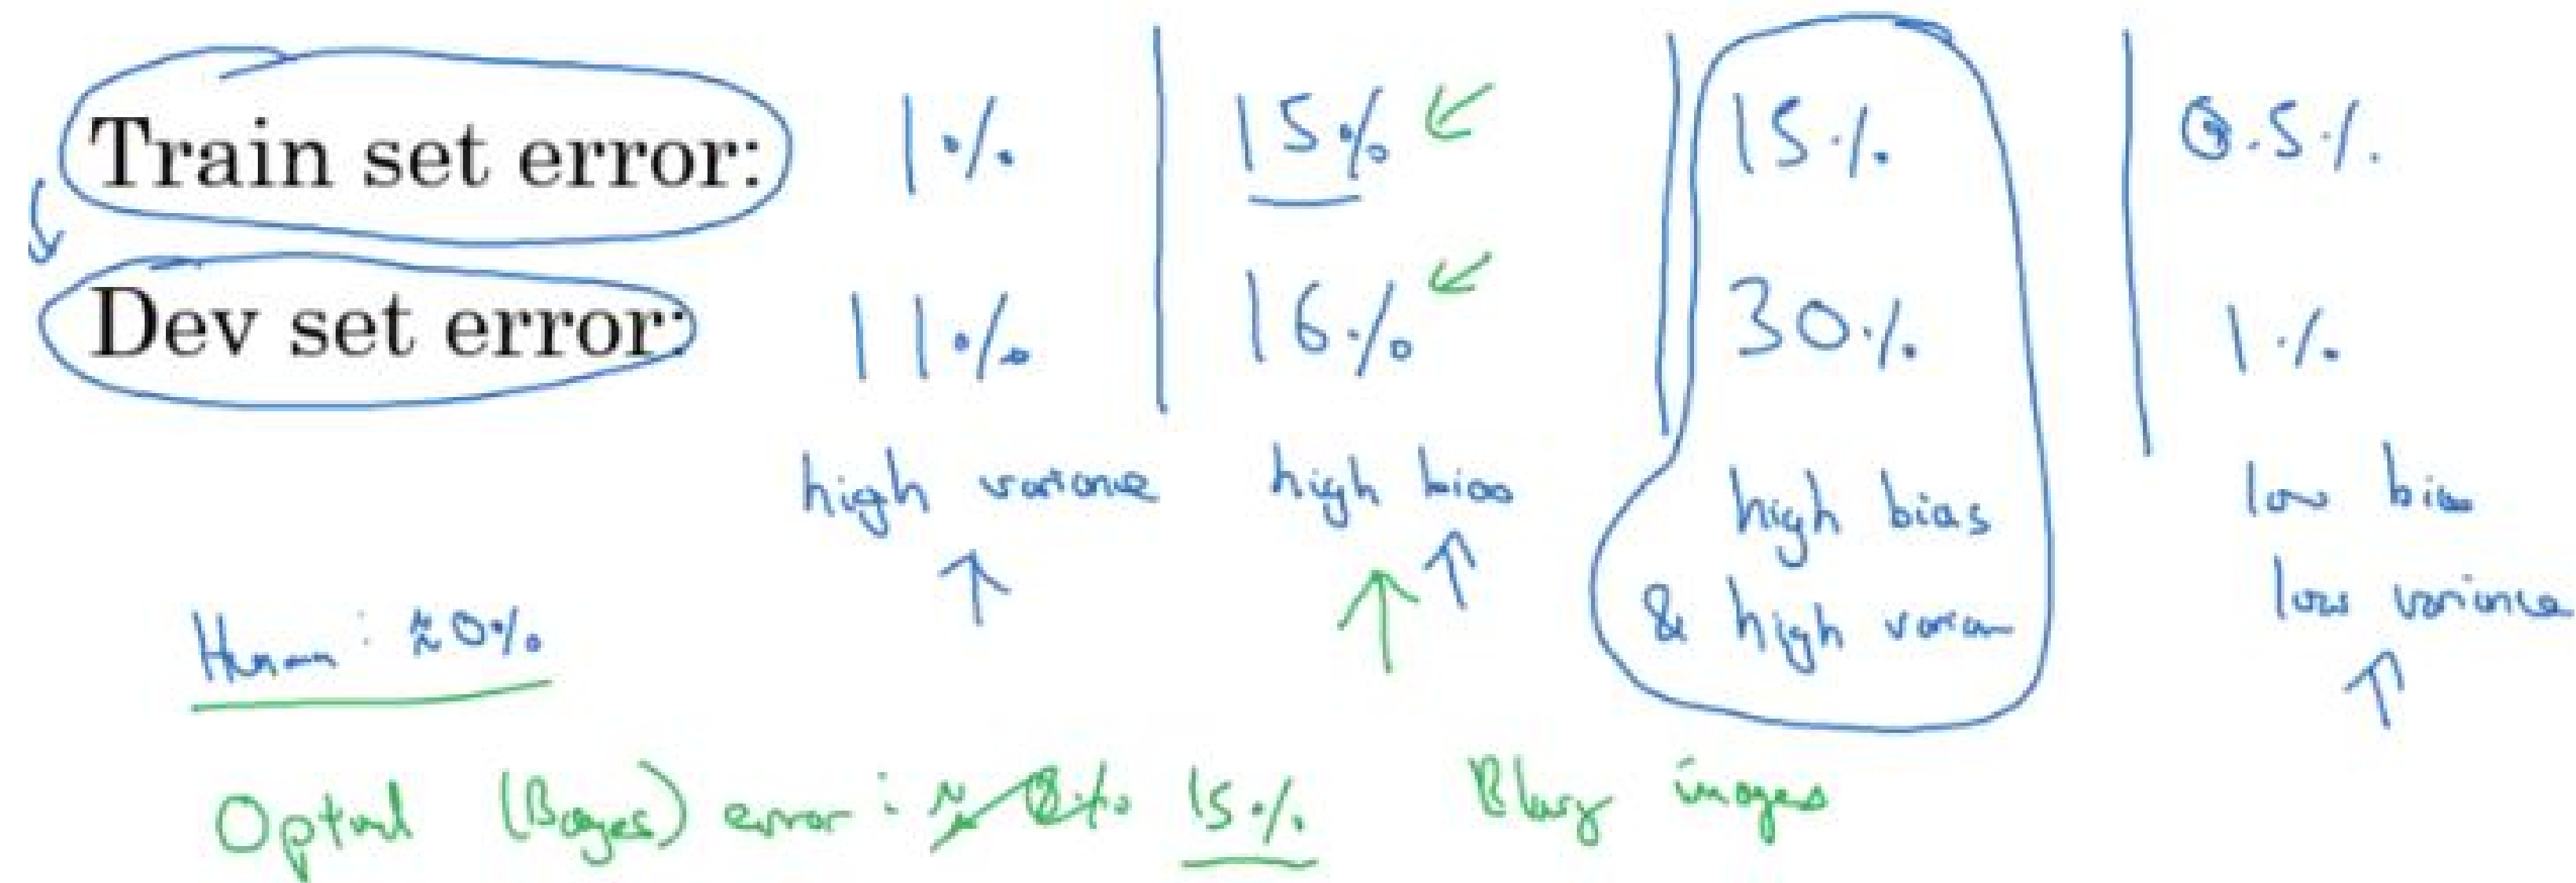 Train set error: 1% 15% 15% 0.5%
Dev set error: 11% 16% 30% 1%
high variance high bias high bias low bias
& high varian low variance
Human: ≈0%
Optimal (Bayes) error: ≈0% 15% Blurry images